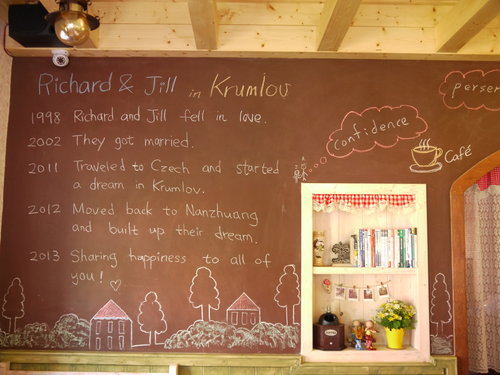 Richard & Jill in Krumlov
1998 Richard and Jill fell in love.
2002 They got married.
2011 Traveled to Czech and started
a dream in Krumlov.
2012 Moved back to Nanzhuang
and built up their dream.
2013 Sharing happiness to all of
you!
confidence
perser
Café